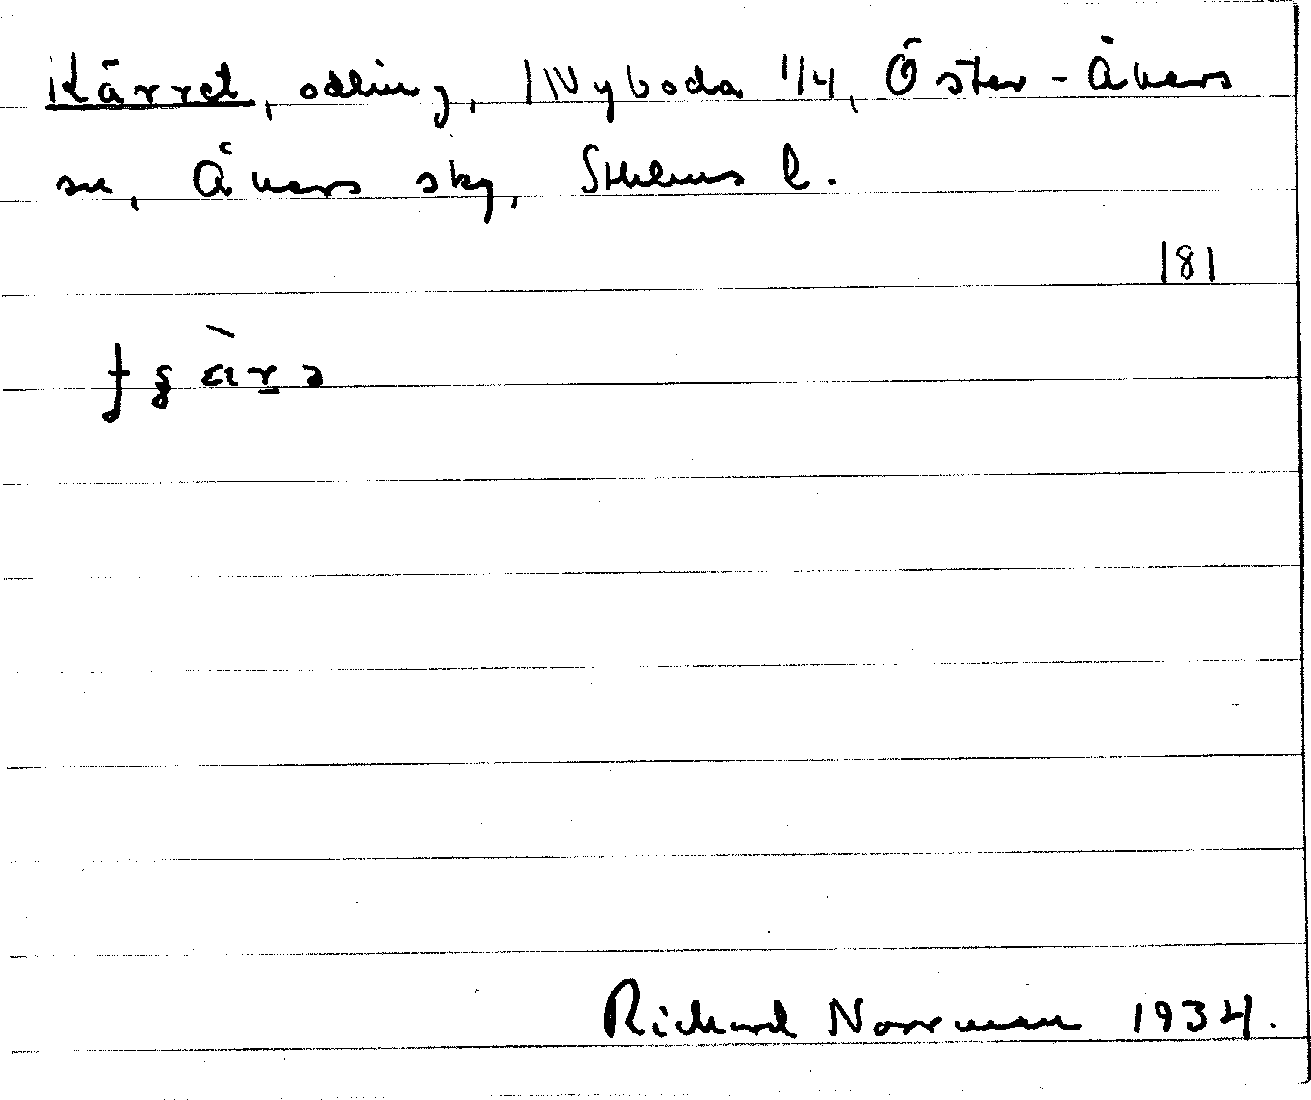 Kärret, odling, Nyboda 1/4, Öster-Åkers
sn, Åkers skg, Sthlms l.
181
Richard Norrman 1934.